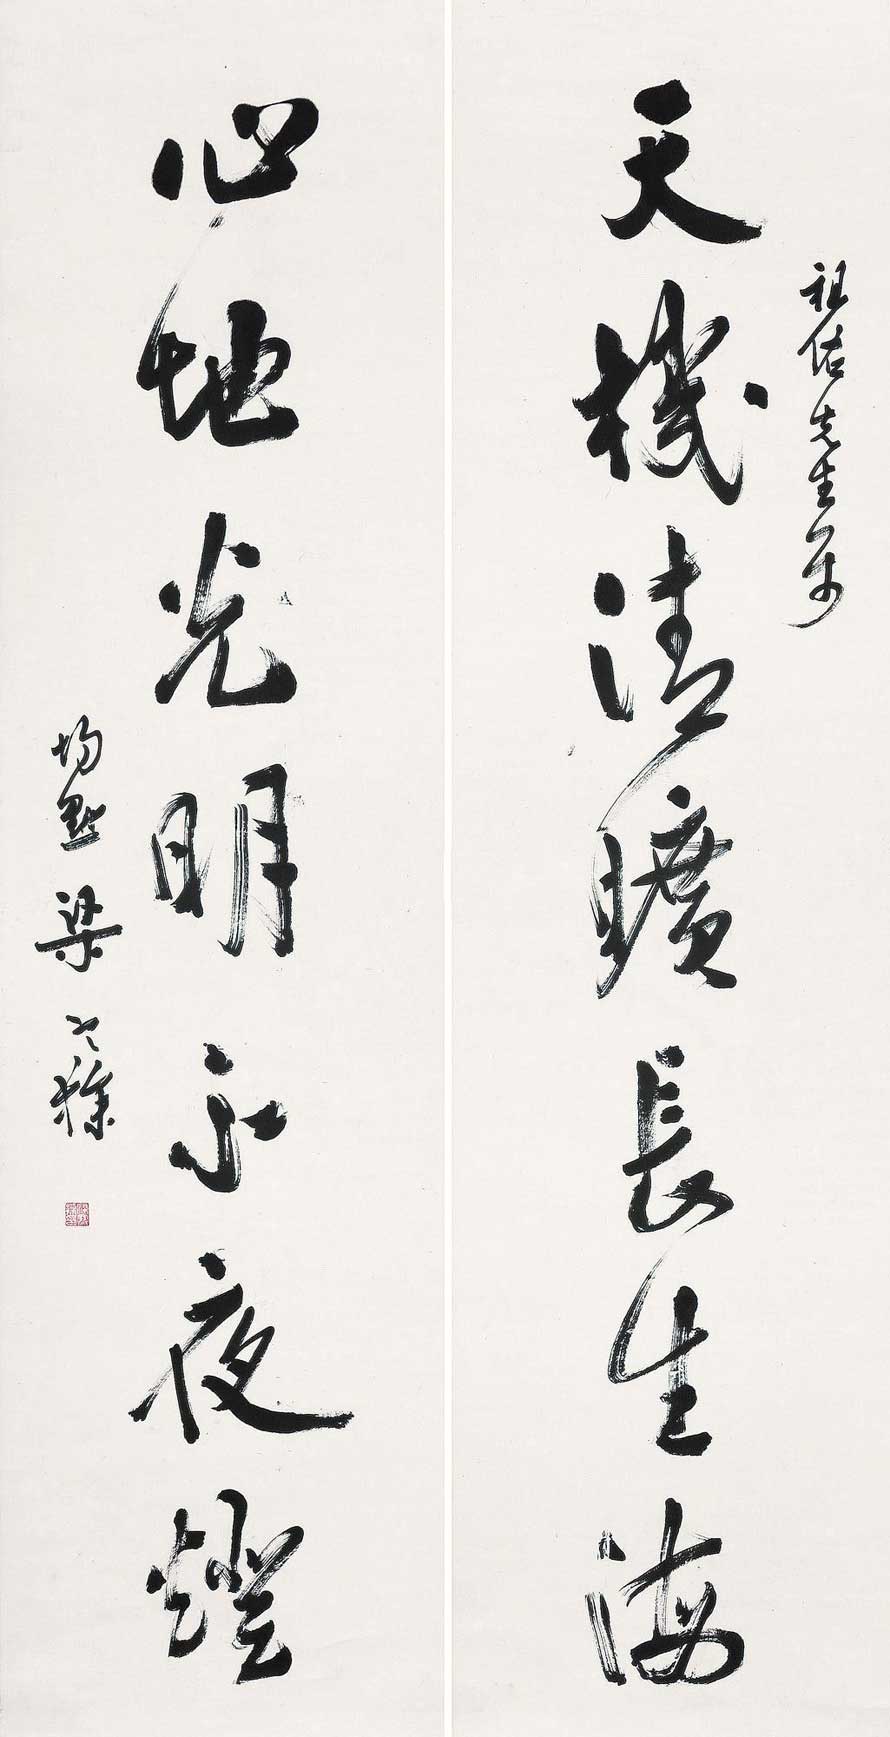 祖佑先生属
天機清曠長生海
心地光明不夜燈
均默梁寒操